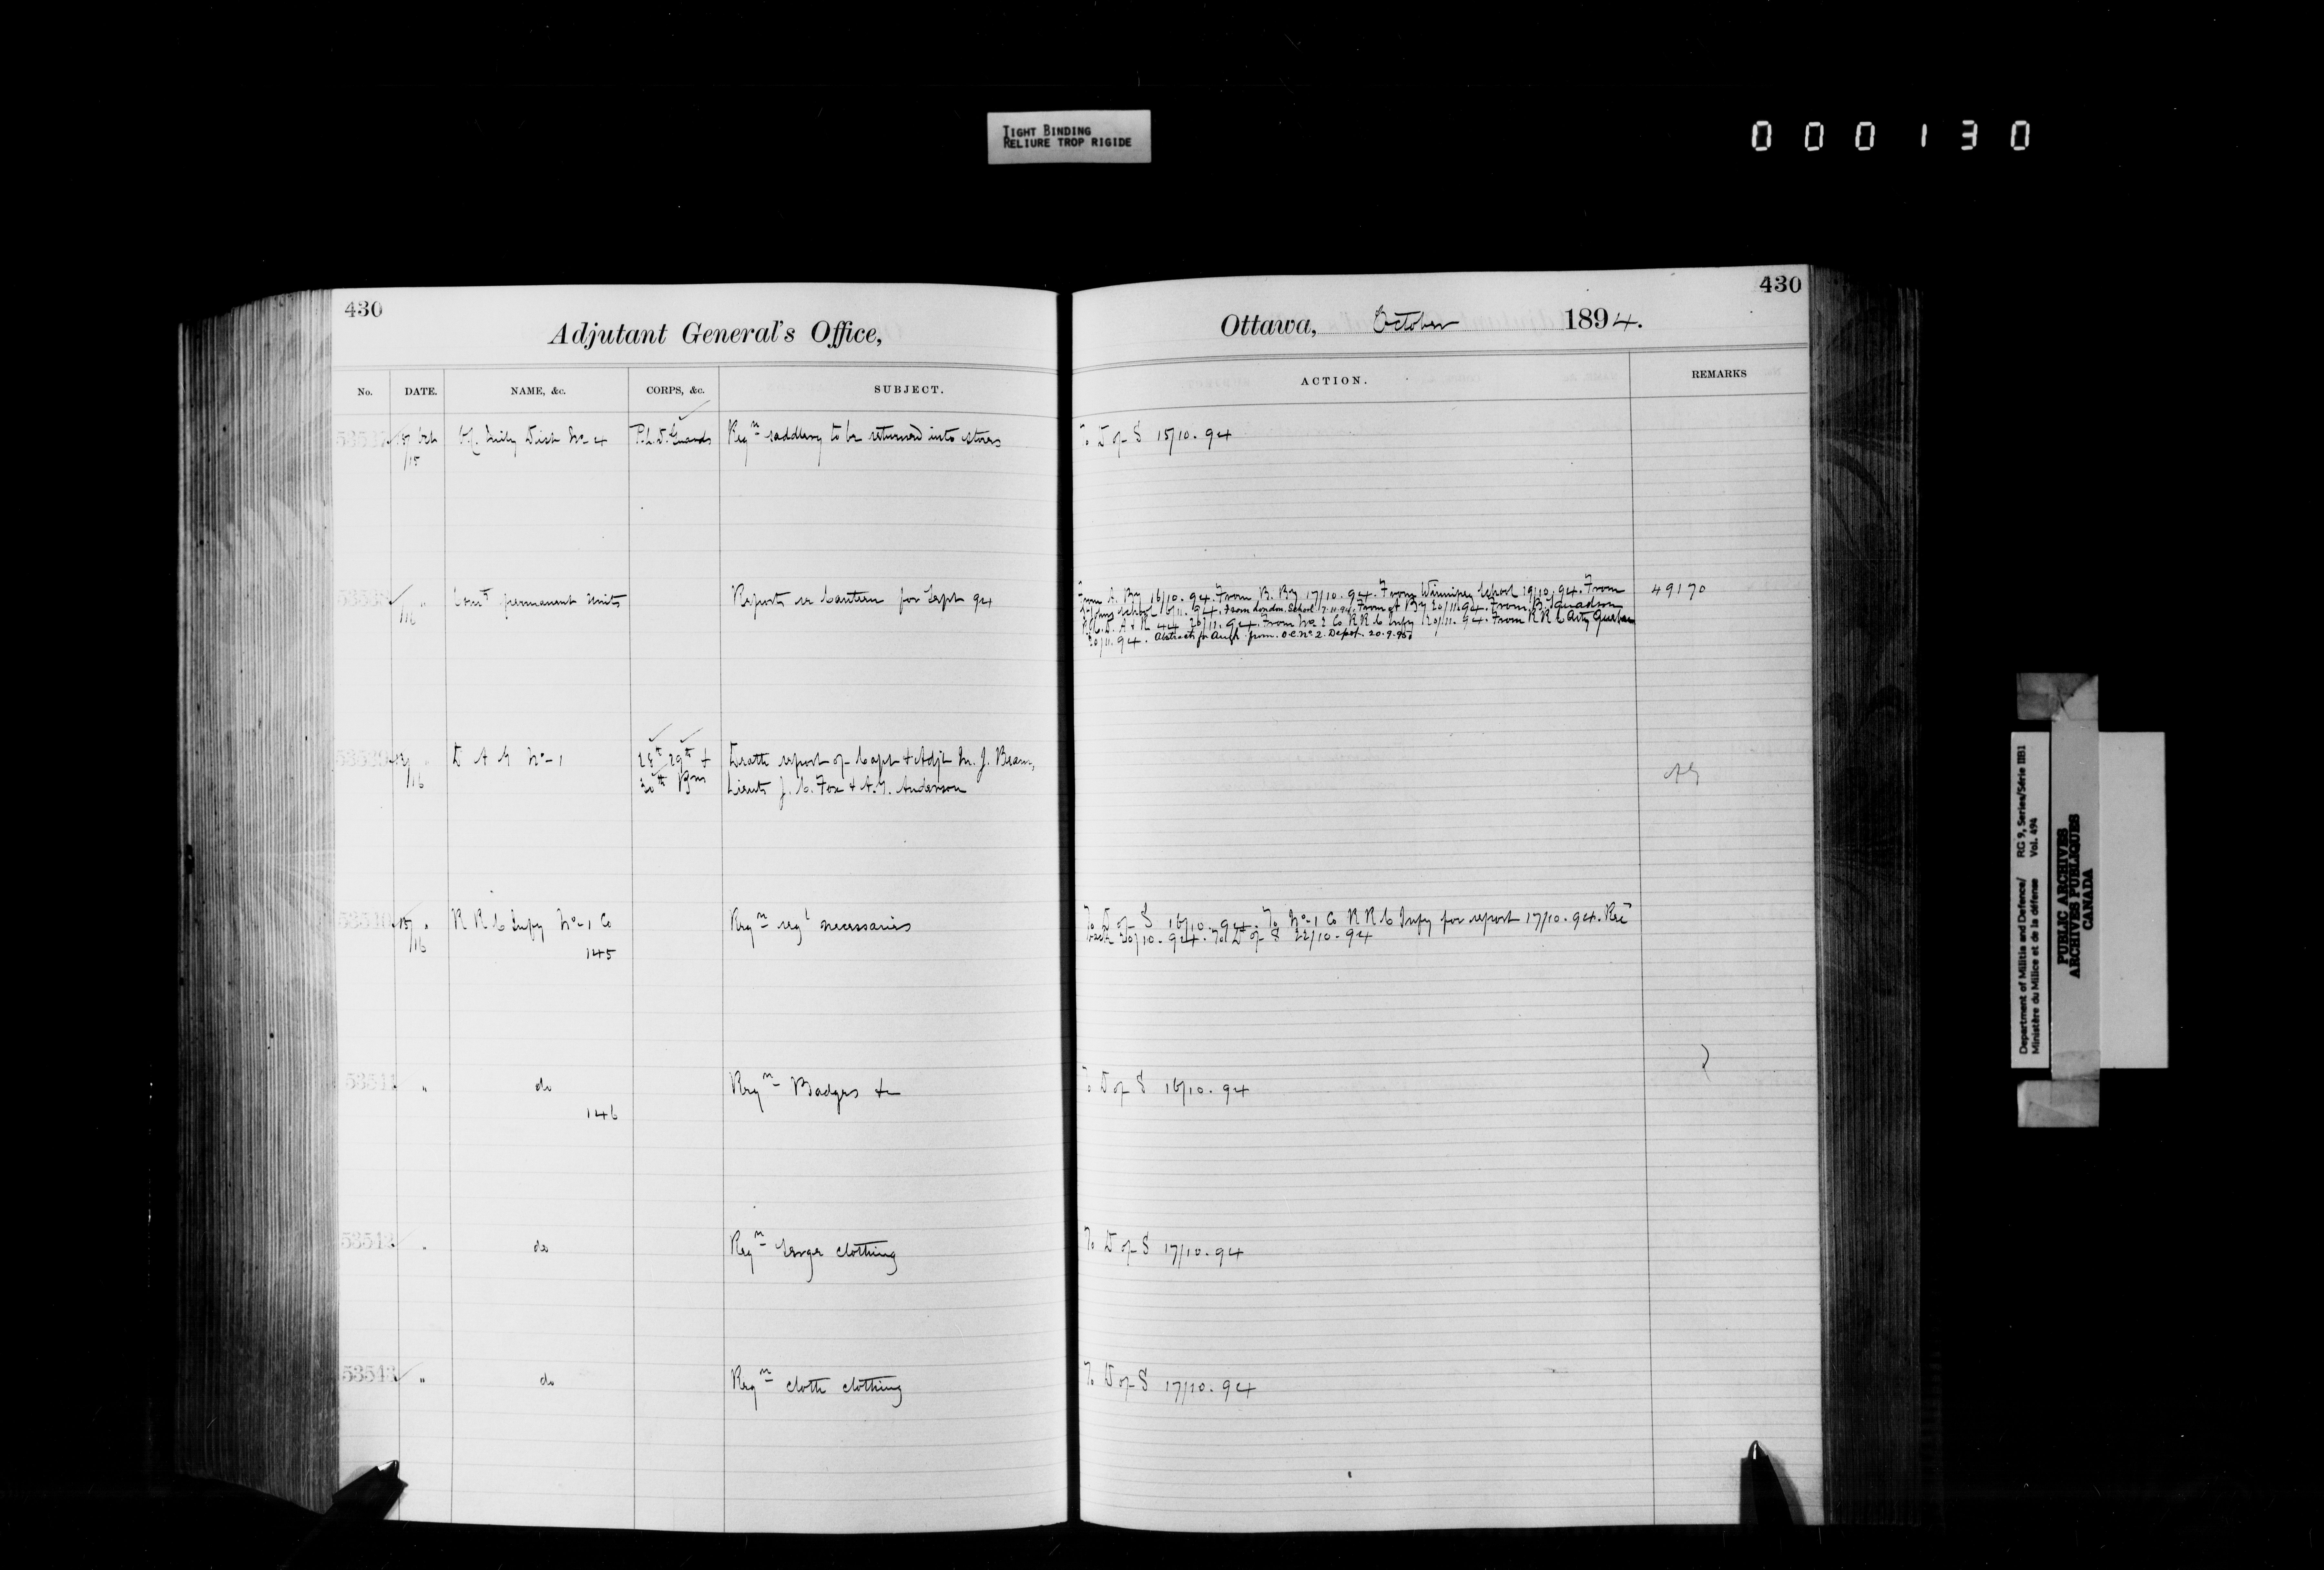 TIGHT BINDING
RELIURE TROP RIGIDE
000130
430
Adjutant General's Office,
No. DATE. NAME, &c. CORPS, &c. SUBJECT.
53537 15/15 Oct Of. Mily Dist No 4 P.L.D. Guards Reqn saddlery to be returned into stores
53538 /16 " Comt permanent units Reports re Canteen for Sept 94
53539 13/16 " D A G No 1 28th 29th & Death report of Capt & Adjt M. J. Beam,
30th Bns Lieuts J. C. Fox & A. Y. Anderson
53540 15/16 " R R C Infy No 1 Co Reqn regl necessaries
145
53541 " do Reqn Badges &c
146
53542 " do Reqn serge clothing
53543 " do Reqn cloth clothing
430
Ottawa, October 1894.
ACTION. REMARKS
To D of S 15/10.94
From A. By 16/10.94. From B. By 17/10.94. From Winnipeg School 19/10.94. From 49170
St Johns School 6/11.94. From London School 7.11.94. From A By 20/11.94. From B. Squadron
R.C.D. 20/11.94. From No 2 Co R R C Infy 20/11.94. From R R C Arty Quebec
20/11.94. Abstracts for Augt from O.C. No 2. Depot. 20.9.95
AG
To D of S 16/10.94. To No 1 Co R R C Infy for report 17/10.94. Recd
back 20/10.94. To D of S 22/10.94
To D of S 16/10.94
To D of S 17/10.94
To D of S 17/10.94
Department of Militia and Defence/ RG 9, Series/Série IIB1
Ministère du Milice et de la défense Vol. 494
PUBLIC ARCHIVES
ARCHIVES PUBLIQUES
CANADA